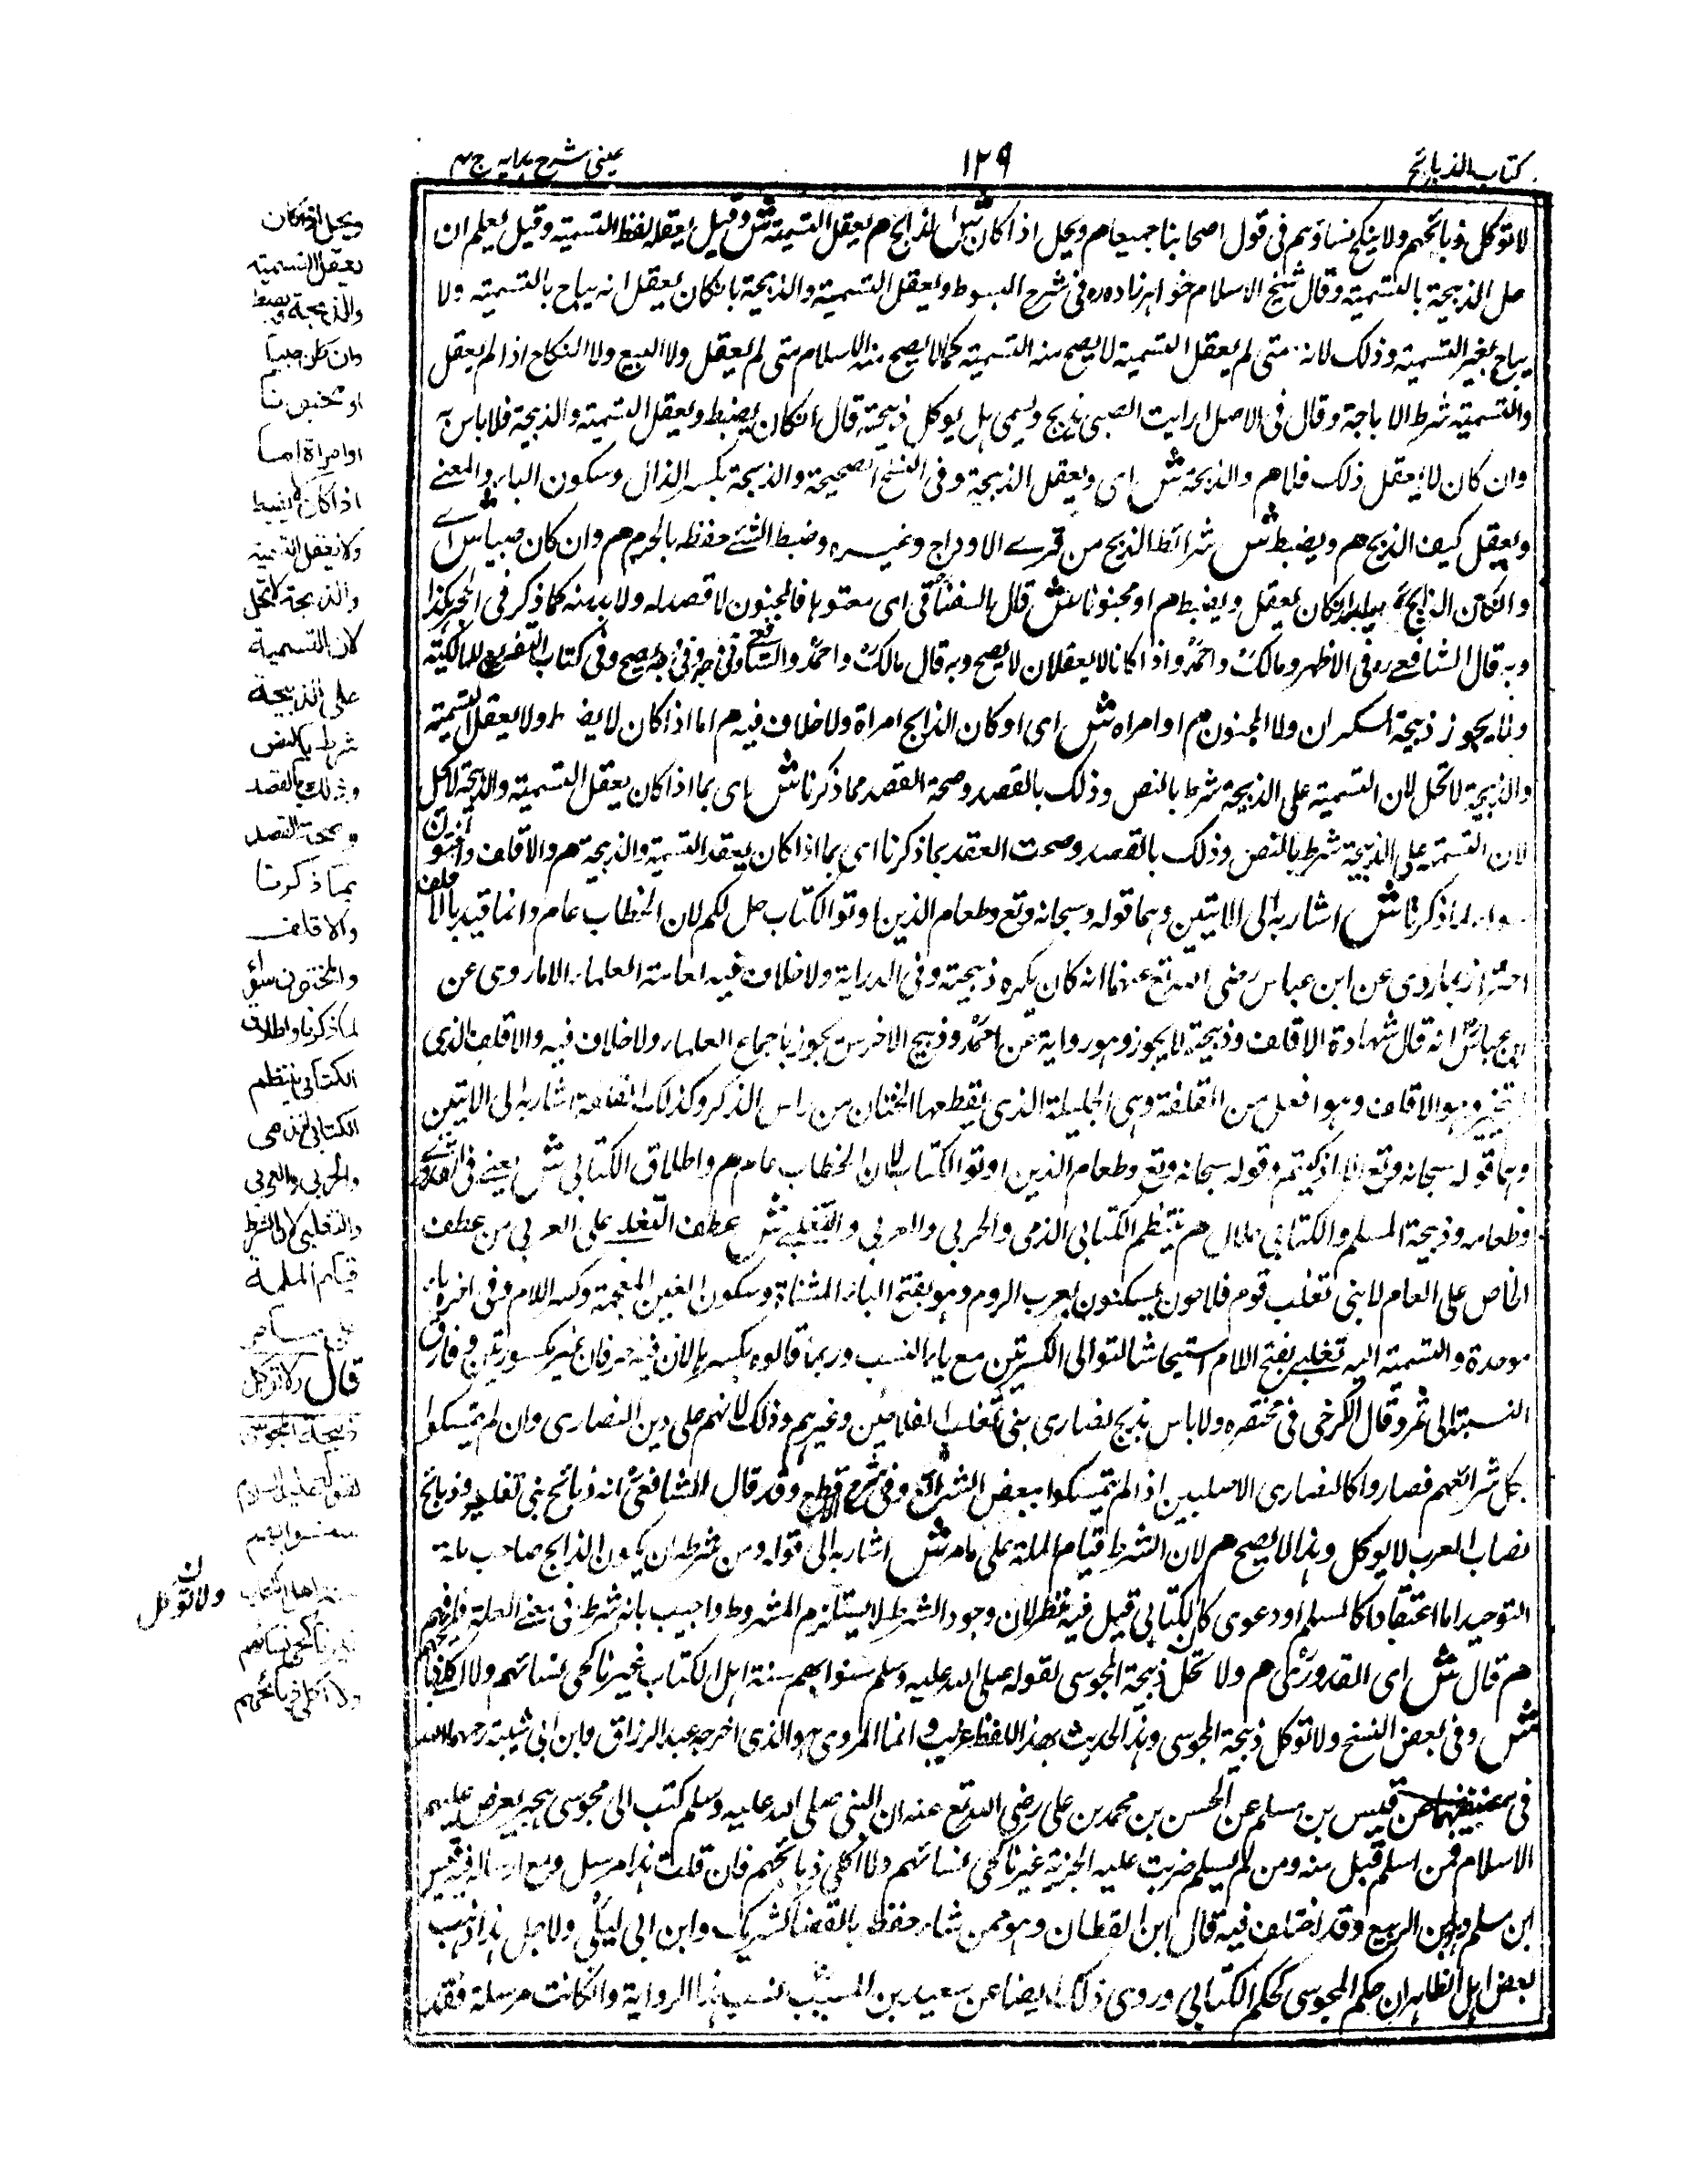 كتاب الذبائح
١٢٩
عينى شرح هدايه ج ٤
لا توكل ذبائحهم ولا ينكح نساؤهم فى قول اصحابنا جميعا هم ويحل اذا كان ش اى الذابح هم يعقل التسمية ش وقيل يعقل لفظ التسمية وقيل يعلم ان
حل الذبيحة بالتسمية وقال شيخ الاسلام خواهر زاده ره فى شرح المبسوط ويعقل التسمية والذبيحة بان كان يعقل انه يباح بالتسمية ولا
يباح بغير التسمية وذلك لانه متى لم يعقل التسمية لا يصح منه التسمية كما لا يصح منه الاسلام متى لم يعقل ولا البيع ولا النكاح اذا لم يعقل
والتسمية شرط الاباحة وقال فى الاصل ارايت الصبى يذبح ويسمى هل يوكل ذبيحته قال ان كان يضبط ويعقل التسمية والذبيحة فلا باس به
وان كان لا يعقل ذلك فلا هم والذبحة ش اى ويعقل الذبيحة وفى النسخ الصحيحة والذبحة بكسر الذال وسكون الباء والمعنے
ويعقل كيف الذبح هم ويضبط ش شرائط الذبح من فرے الاوداج وغيره وضبط الشئے حفظه بالحزم هم وان كان صبيا ش اے
وان كان الذابح صبيا ان كان يعقل ويضبط هم او مجنونا ش قال السغناقى اى معتوها فالمجنون لا قصد له ولا بد منه كما ذكر فى
وبه قال الشافعے ره فى الاظهر ومالك واحمد واذا كانا لا يعقلان لا يصح وبه قال مالك واحمد والشافعى فى وجه وفى وجه يصح وفى كتاب التفريع للمالكية
ولا يجوز ذبيحة السكران ولا المجنون هم او امراه ش اى او كان الذابح امراة ولا خلاف فيه هم اما اذا كان لا يضبط ولا يعقل التسمية
والذبيحة لا تحل لان التسمية على الذبيحة شرط بالنص وذلك بالقصد وصحة القصد مما ذكرنا ش اى بما اذا كان يعقل التسمية والذبيحة لا تحل
لان التسمية على الذبيحة شرط بالنص وذلك بالقصد وصحت العقد بما ذكرنا اى بما اذا كان يعقد التسمية والذبيحة هم والاقلف والمختون
سواء لما ذكرنا ش اشار به الى الايتين وهما قوله وسبحانه وتع وطعام الذين اوتو الكتاب حل لكم لان الخطاب عام وانما قيد بالاقلف
احترازا بما روى عن ابن عباس رضى الله تع عنهما انه كان يكره ذبيحته وفى الدراية ولا خلاف فيه لعامة العلماء الا ما روى عن
ابن عباس انه قال شهادة الاقلف وذبيحته لا يجوز وهو رواية عن احمد وذبيح الاخرس يجوز باجماع العلماء ولا خلاف فيه والاقلف الذى
وهو الاقلف وهو افعل من القلفة وهى الجليدة الذى يقطعها الختان من راس الذكر وكذلك اشار به الى الايتين
وهما قوله سبحانه وتع الا ما ذكيتم وقوله سبحانه وتع وطعام الذين اوتو الكتاب لان الخطاب عام هم واطلاق الكتابى ش يعنے فى
وطعامه وذبيحة المسلم والكتابى حلال هم ينتظم الكتابى الذمى والحربى والعربى والتغلبے ش عطف التغلبے على العربى من عطف
الخاص على العام لا بنى تغلب قوم فلاحون يسكنون بعرب الروم وهو بفتح الباء المثناة وسكون الغين المعجمة وكسر اللام وفى اخره باء
موحدة والتسمية اليه تغلبے بفتح اللام استيحاشا لتوالى الكسرتين مع ياء النسب وربما قالوه بكسرها لان فيه حرفان غير مكسورتين وفارق
النسبة الى نمر وقال الكرخى فى مختصره ولا باس بذبح نصارى بنى تغلب الفلاحين وغيرهم وذلك لانهم على دين النصارى وان لم يتمسكوا
بكل شرائعهم فصاروا كالنصارى الاصليين اذ لم يتمسكوا ببعض الشرائع وفى شرح الاقطع وقد قال الشافعى انه ذبائح بنى تغلب وذبائح
نصاب العرب لا يوكل وهذا لا يصح هم لان الشرط قيام الملة على ما مر ش اشار به الى قوله ومن شرطه ان يكون الذابح صاحب ملة
التوحيد اما اعتقادا كالمسلم او دعوى كالكتابى قيل فيه نظر لان وجود الشرط لا يستلزم المشروط واجيب بانه شرط فى معنے العلة فافهم
هم قال ش اى القدورى هم ولا تحل ذبيحة المجوسى لقوله صلى الله عليه وسلم سنوا بهم سنة اهل الكتاب غير ناكحى نسائهم ولا اكلے ذبائحهم
ش وفى بعض النسخ ولا توكل ذبيحة المجوسى وهذا الحديث بهذا اللفظ غريب وانما المروى هو الذى اخرجه عبد الرزاق وابن ابى شيبة رحمهما الله
فى مصنفيهما عن قيس بن مسلم عن الحسن بن محمد بن على رضى الله تع عنه ان النبى صلى الله عليه وسلم كتب الى مجوسى هجر يعرض عليهم
الاسلام فمن اسلم قبل منه ومن لم يسلم ضربت عليه الجزية غير ناكحى نسائهم ولا اكلى ذبائحهم فان قلت هذا مرسل ومع ارساله فيه قيس
ابن مسلم وهو ابن الربيع وقد اختلف فيه قال ابن القطان وهو ممن شاء حفظه بالقضا كشريك وابن ابى ليلى ولاجل هذا ذهب
بعض اهل الظاهر ان حكم المجوسى كحكم الكتابى وروى ذلك ايضا عن سعيد بن المسيب نسب هذا الرواية وان كانت مرسلة فقد
ويحل اذا كان
يعقل التسمية
والذبحة ويضبط
وان كان صبيا
او مجنونا
او امراة اما
اذا كان لا يضبط
ولا يعقل التسمية
والذبيحة لا تحل
لان التسمية
على الذبيحة
شرط بالنص
وذلك بالقصد
وصحة القصد
بما ذكرنا
والاقلف
والمختون سواء
لما ذكرنا واطلاق
الكتابى ينتظم
الكتابى الذمى
والحربى والعربى
والتغلبى لان الشرط
قيام الملة
على ما مر
قال ولا توكل
ذبيحة المجوسى
لقوله عليه السلام
سنوا بهم
سنة اهل الكتاب
غير ناكحى نسائهم
ولا اكلى ذبائحهم
ن
ولا توكل